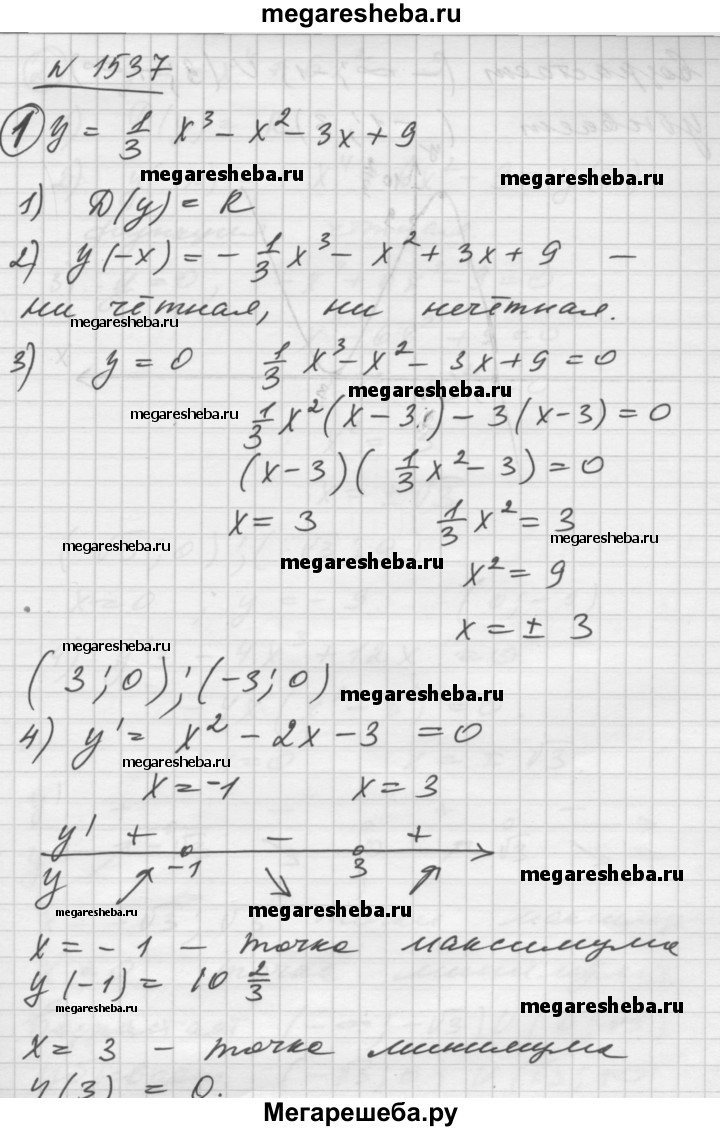 megaresheba.ru
N 1537
1 y = 1/3 x³ - x² - 3x + 9
megaresheba.ru megaresheba.ru
1) D(y) = R
2) y(-x) = - 1/3 x³ - x² + 3x + 9 —
ни чётная, ни нечётная.
megaresheba.ru
3) y = 0 1/3 x³ - x² - 3x + 9 = 0
megaresheba.ru
megaresheba.ru 1/3 x² (x - 3) - 3 (x - 3) = 0
(x - 3) ( 1/3 x² - 3 ) = 0
x = 3 1/3 x² = 3
megaresheba.ru megaresheba.ru megaresheba.ru
x² = 9
x = ± 3
megaresheba.ru
(3; 0); (-3; 0) megaresheba.ru
4) y' = x² - 2x - 3 = 0
megaresheba.ru
x = -1 x = 3
y' + − +
y -1 3
megaresheba.ru
megaresheba.ru megaresheba.ru
x = - 1 — точка максимума
y (-1) = 10 2/3
megaresheba.ru
x = 3 — точка минимума
y(3) = 0.
Мегарешеба.ру